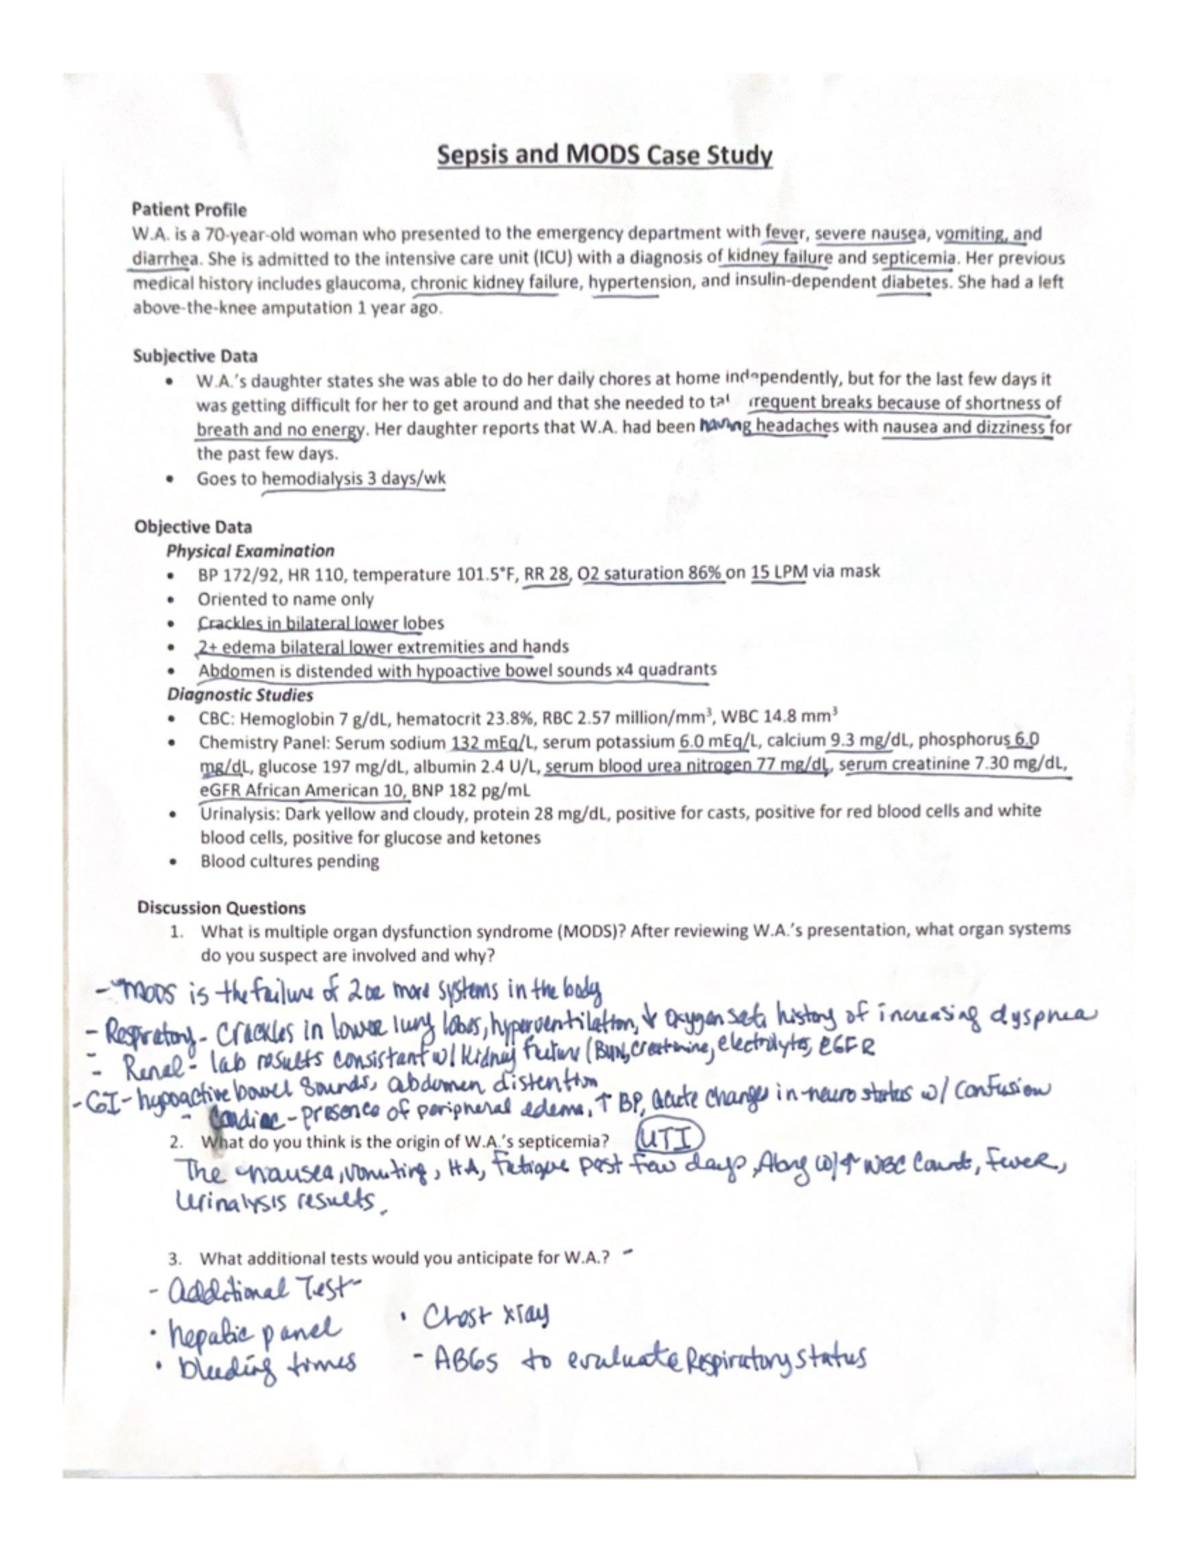 Sepsis and MODS Case Study
Patient Profile
W.A. is a 70-year-old woman who presented to the emergency department with fever, severe nausea, vomiting, and
diarrhea. She is admitted to the intensive care unit (ICU) with a diagnosis of kidney failure and septicemia. Her previous
medical history includes glaucoma, chronic kidney failure, hypertension, and insulin-dependent diabetes. She had a left
above-the-knee amputation 1 year ago.
Subjective Data
• W.A.'s daughter states she was able to do her daily chores at home independently, but for the last few days it
was getting difficult for her to get around and that she needed to frequent breaks because of shortness of
breath and no energy. Her daughter reports that W.A. had been having headaches with nausea and dizziness for
the past few days.
• Goes to hemodialysis 3 days/wk
Objective Data
Physical Examination
• BP 172/92, HR 110, temperature 101.5°F, RR 28, O2 saturation 86% on 15 LPM via mask
• Oriented to name only
• Crackles in bilateral lower lobes
• 2+ edema bilateral lower extremities and hands
• Abdomen is distended with hypoactive bowel sounds x4 quadrants
Diagnostic Studies
• CBC: Hemoglobin 7 g/dL, hematocrit 23.8%, RBC 2.57 million/mm³, WBC 14.8 mm³
• Chemistry Panel: Serum sodium 132 mEq/L, serum potassium 6.0 mEq/L, calcium 9.3 mg/dL, phosphorus 6.0
mg/dL, glucose 197 mg/dL, albumin 2.4 U/L, serum blood urea nitrogen 77 mg/dL, serum creatinine 7.30 mg/dL,
eGFR African American 10, BNP 182 pg/mL
• Urinalysis: Dark yellow and cloudy, protein 28 mg/dL, positive for casts, positive for red blood cells and white
blood cells, positive for glucose and ketones
• Blood cultures pending
Discussion Questions
1. What is multiple organ dysfunction syndrome (MODS)? After reviewing W.A.'s presentation, what organ systems
do you suspect are involved and why?
- MODS is the failure of 2 or more systems in the body
- Respiratory - Crackles in lower lung lobes, hyperventilation, ↓ oxygen sat, history of increasing dyspnea
- Renal - lab results consistant w/ Kidney failure (BUN, creatinine, electrolytes, EGFR
- GI - hypoactive bowel sounds, abdomen distention
- Cardiac - presence of peripheral edema, ↑ BP, acute changes in neuro status w/ confusion
2. What do you think is the origin of W.A.'s septicemia? UTI
The nausea, vomiting, HA, fatigue past few days, Along w/ ↑ WBC Count, fever,
Urinalysis results.
3. What additional tests would you anticipate for W.A.? -
- Additional Test -
• hepatic panel
• Chest xray
• bleeding times
- ABGs to evaluate Respiratory status